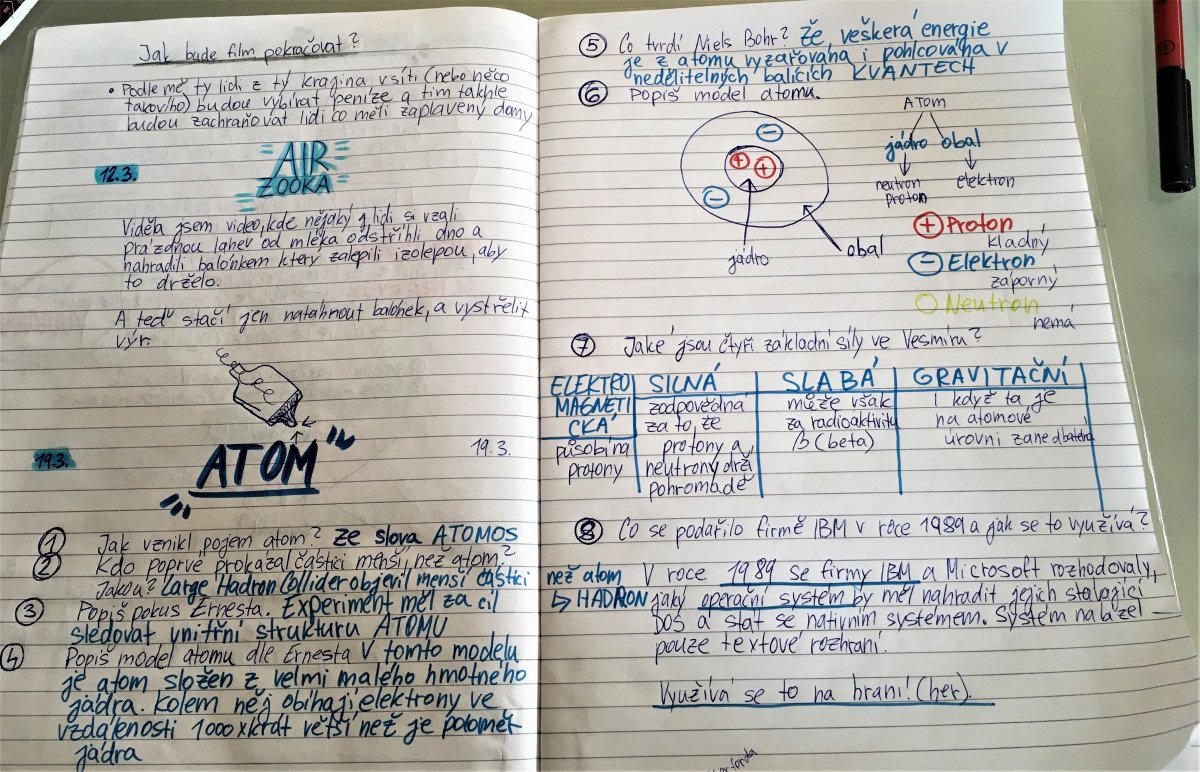 Jak bude film pokračovat?
• Podle mě ty lidi z tý krajina v síti (nebo něco
takovího) budou vybírat peníze a tim takhle
budou zachraňovat lidi co měli zaplavený domy
12.3.
AIR
ZOOKA
Viděla jsem video, kde nějaký lidi si vzali
prázdnou lahev od mlíka odstřihli dno a
nahradili balónkem který zalepili izolepou, aby
to drželo.
A teď stačí jen natahnout balonek, a vystřelit
výr
19.3.
ATOM
19.3.
1 Jak vznikl pojem atom? Ze slova ATOMOS
2 Kdo poprvé prokázal částici menší, než atom?
Jakou? Large Hadron Collider objevil menší částici
než atom
↳ HADRON
3 Popiš pokus Ernesta. Experiment měl za cíl
sledovat vnitřní strukturu ATOMU
4 Popiš model atomu dle Ernesta V tomto modelu
je atom složen z velmi malého hmotného
jádra. Kolem něj obíhají elektrony ve
vzdálenosti 1000x krát větší než je poloměr
jádra
5 Co tvrdí Niels Bohr? Že veškerá energie
je z atomu vyzařována i pohlcována v
nedělitelných balíčích KVANTECH
6 Popiš model atomu.
ATOM
jádro obal
neutron
proton
elektron
jádro
obal
+ Proton
kladný
− Elektron
záporný
Neutron
nemá
7 Jaké jsou čtyři základní síly ve Vesmíru?
ELEKTRO
MAGNETI
CKÁ
působí na
protony
SILNÁ
zodpovědná
za to, že
protony a
neutrony drží
pohromadě
SLABÁ
může však
za radioaktivitu
β (beta)
GRAVITAČNÍ
i když ta je
na atomové
úrovni zanedbatelná
8 Co se podařilo firmě IBM v roce 1989 a jak se to využívá?
V roce 1989 se firmy IBM a Microsoft rozhodovaly,
jaký operační systém by měl nahradit jejich stávající
DOS a stát se nativním systémem. Systém nabízel
pouze textové rozhraní.
Využívá se to na hraní! (her).